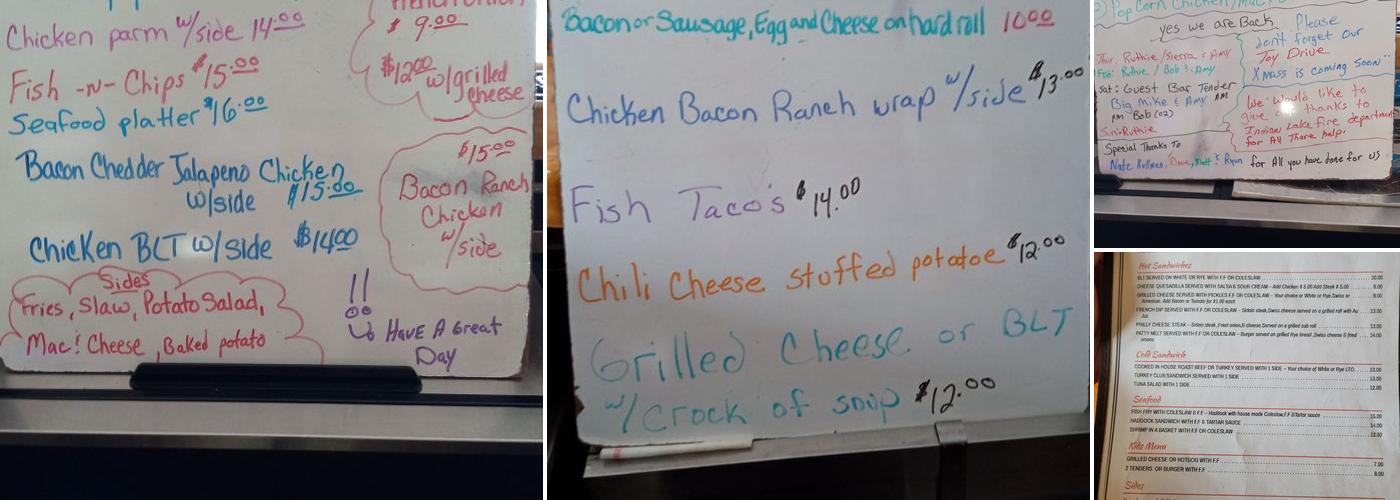 Chicken parm w/side 14.00
Fish -n- Chips $15.00
Seafood platter $16.00
Bacon Chedder Jalapeno Chicken
w/side $15.00
Chicken BLT w/side $14.00
Sides
Fries, Slaw, Potato Salad,
Mac & Cheese, Baked potato
$ 9.00
$12.00 w/grilled
cheese
$15.00
Bacon Ranch
Chicken
w/side
!! Have A Great
Day
Bacon or Sausage, Egg and Cheese on hard roll 10.00
Chicken Bacon Ranch wrap w/side $13.00
Fish Taco's $14.00
Chili Cheese stuffed potatoe $12.00
Grilled Cheese or BLT
w/crock of soup $12.00
Pop Corn Chicken/Mac
yes we are Back
Thur: Ruthie/Sierra & Amy
Fri: Ruthie / Bob & Amy
Sat: Guest Bar Tender
Big Mike & Amy AM
PM Bob (02)
Sun: Ruthie
Please
don't forget our
Toy Drive
Xmass is coming soon
We would like to
give thanks to
Indian Lake fire department
for All There help.
Special Thanks To
Nate Dave, Matt & Ryan for All you have done for us
Hot Sandwiches
BLT SERVED ON WHITE OR RYE WITH F.F OR COLESLAW 10.00
CHEESE QUESADILLA SERVED WITH SALSA & SOUR CREAM - Add Chicken $ 5.00 Add Steak $ 5.00 9.00
GRILLED CHEESE SERVED WITH PICKLES F.F OR COLESLAW - Your choice or White or Rye, Swiss or 8.00
American. Add Bacon or Tomato for $1.00 each
FRENCH DIP SERVED WITH F.F OR COLESLAW - Sirloin steak, Swiss cheese served on a grilled roll with Au 13.00
Jus
PHILLY CHEESE STEAK - Sirloin steak, Fried onion, & cheese, Served on a grilled sub roll 13.00
PATTY MELT SERVED WITH F.F OR COLESLAW - Burger served on grilled Rye bread, Swiss cheese & fried 14.00
onions
Cold Sandwich
COOKED IN HOUSE ROAST BEEF OR TURKEY SERVED WITH 1 SIDE - Your choice of White or Rye LTO 13.00
TURKEY CLUB SANDWICH SERVED WITH 1 SIDE 13.00
TUNA SALAD WITH 1 SIDE 12.00
Seafood
FISH FRY WITH COLESLAW & F.F - Haddock with house made Coleslaw, F.F & Tartar sauce 15.00
HADDOCK SANDWICH WITH F.F & TARTAR SAUCE 14.00
SHRIMP IN A BASKET WITH F.F OR COLESLAW 12.00
Kids Menu
GRILLED CHEESE OR HOTDOG WITH F.F 7.00
2 TENDERS OR BURGER WITH F.F 8.00
Sides